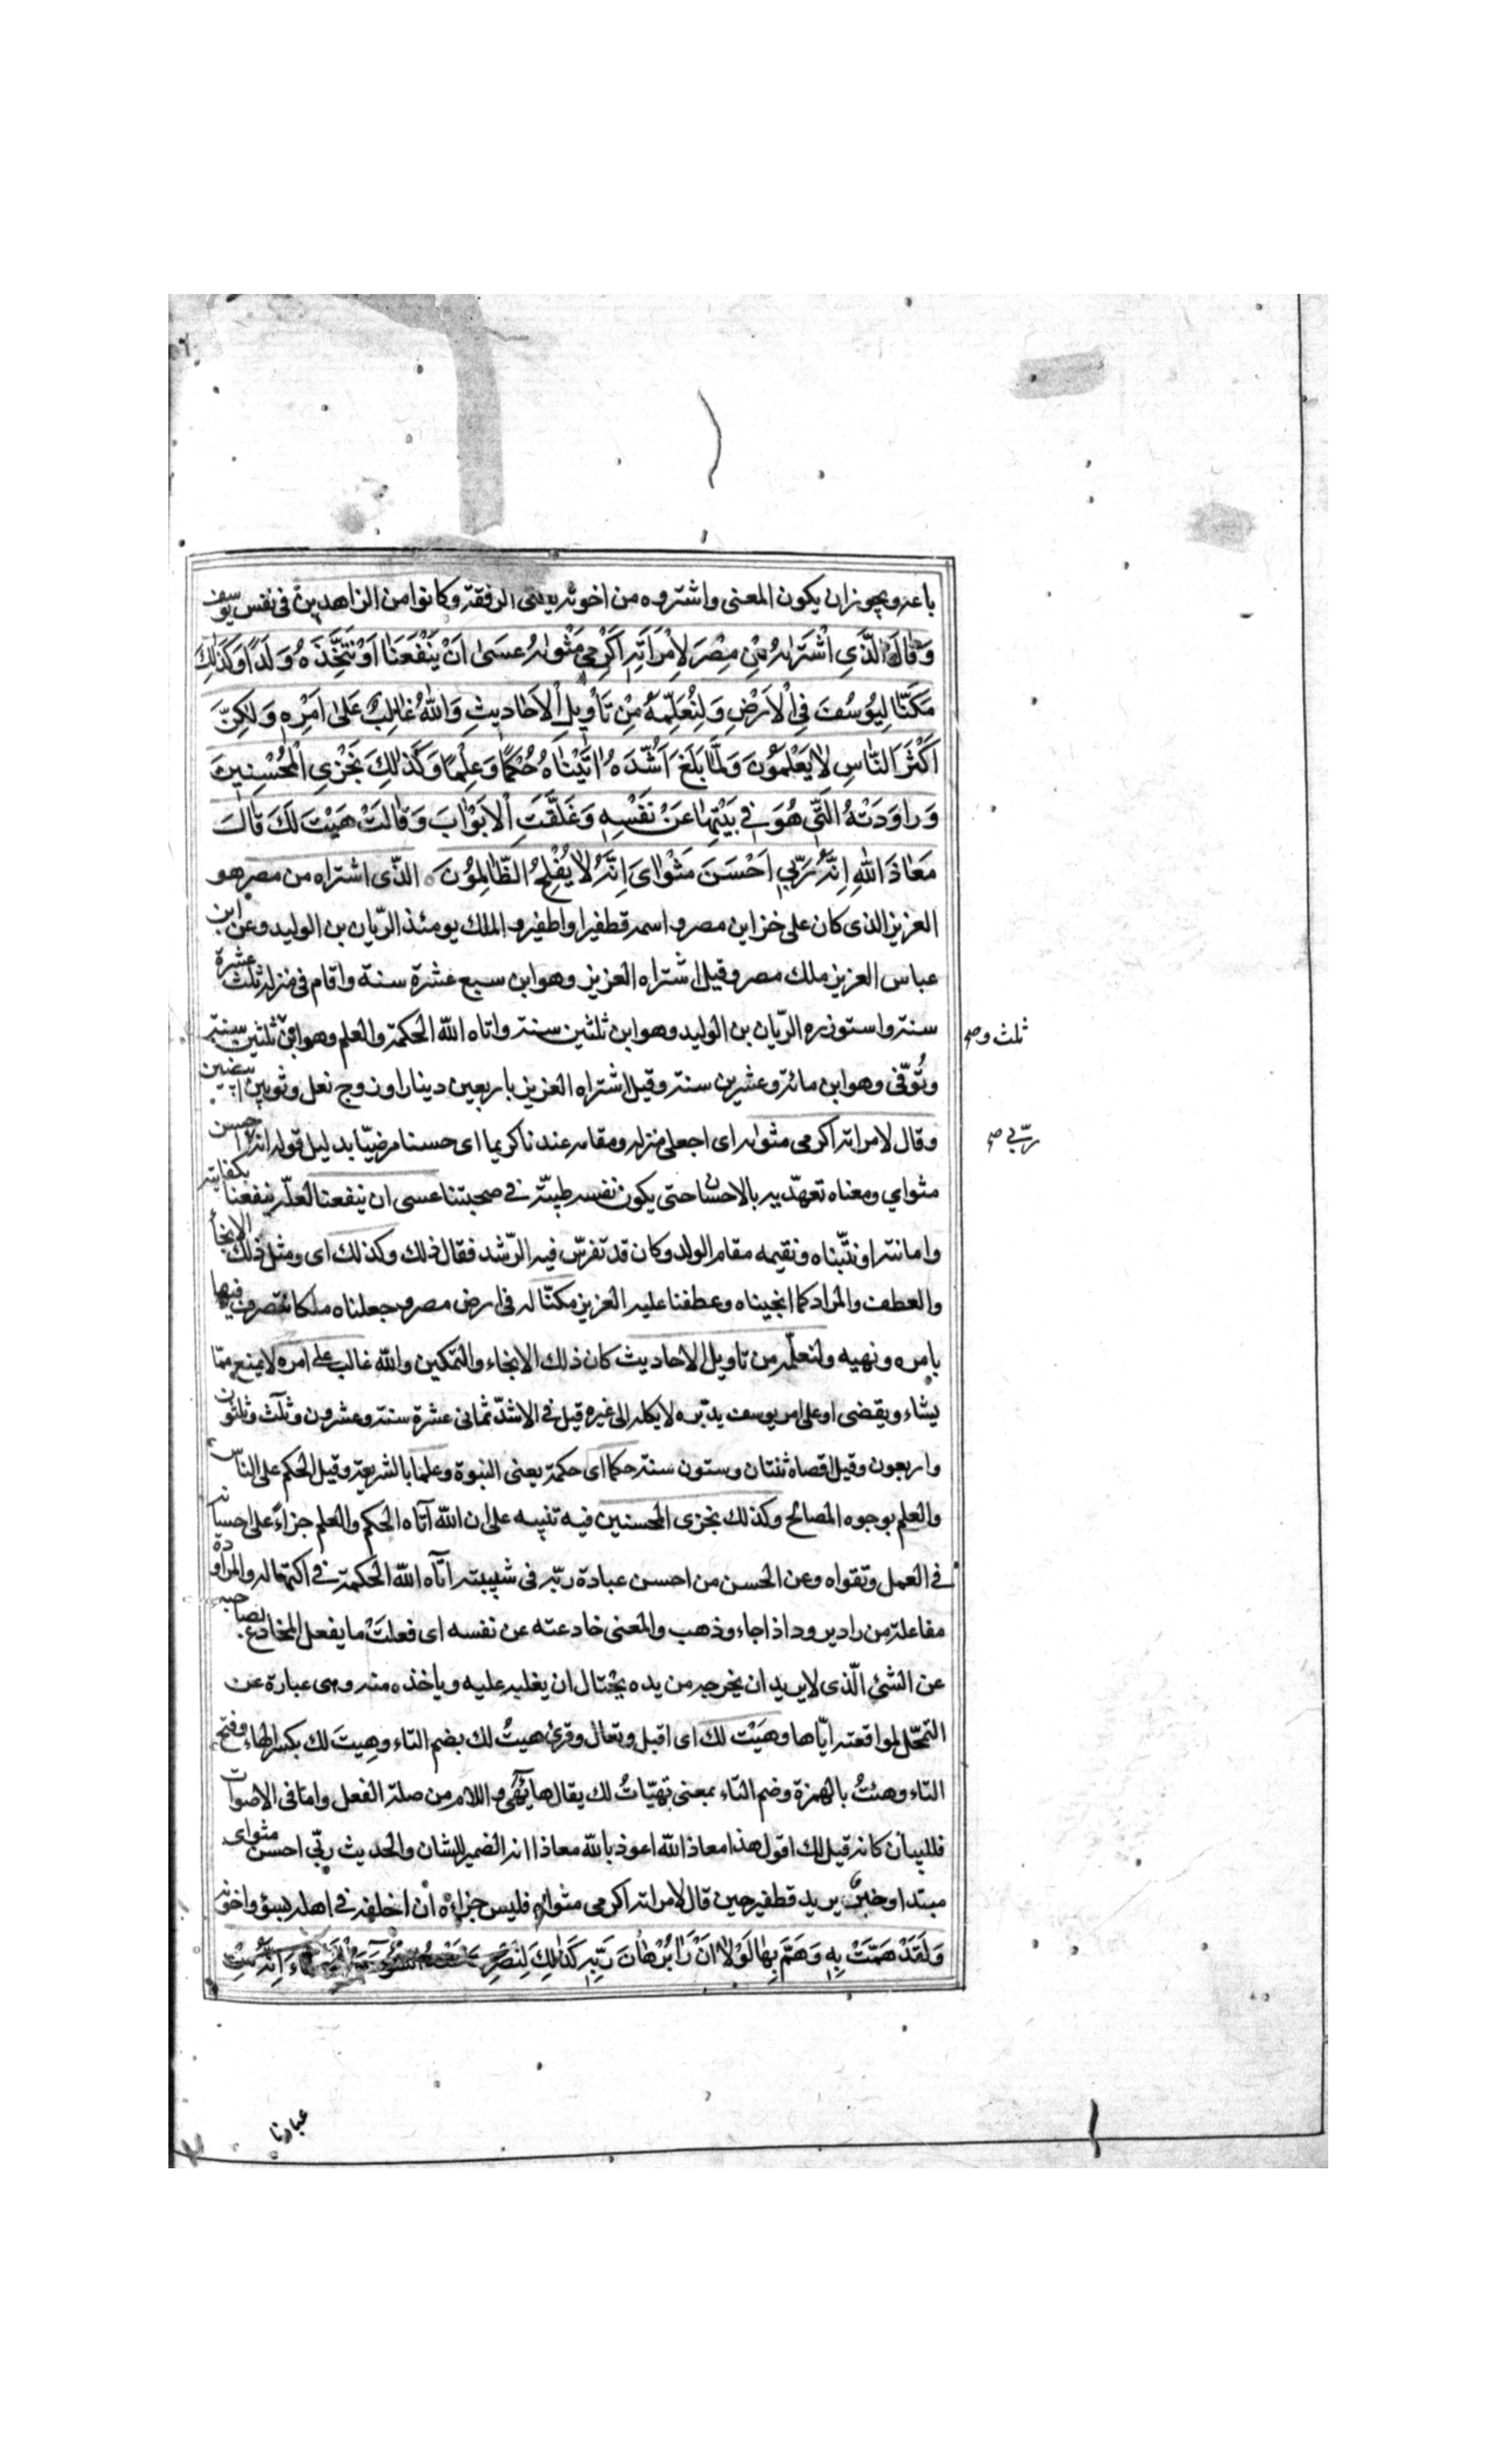 باعه ويجوز ان يكون المعنى واشتروه من اخوته يعنى الرفقة وكانوا من الزاهدين فى نفس يوسف
وَقَالَ الَّذِي اشْتَرٰيهُ مِنْ مِصْرَ لِامْرَاَتِهِ اَكْرِمِي مَثْوٰيهُ عَسَىٰ اَنْ يَنْفَعَنَا اَوْ نَتَّخِذَهُ وَلَدًا وَكَذٰلِكَ
مَكَّنَّا لِيُوسُفَ فِي الْاَرْضِ وَلِنُعَلِّمَهُ مِنْ تَأْوِيلِ الْاَحَادِيثِ وَاللّٰهُ غَالِبٌ عَلىٰ اَمْرِهِ وَلٰكِنَّ
اَكْثَرَ النَّاسِ لَا يَعْلَمُونَ وَلَمَّا بَلَغَ اَشُدَّهُ اٰتَيْنَاهُ حُكْمًا وَعِلْمًا وَكَذٰلِكَ نَجْزِي الْمُحْسِنِينَ
وَرَاوَدَتْهُ الَّتِي هُوَ فِي بَيْتِهَا عَنْ نَفْسِهِ وَغَلَّقَتِ الْاَبْوَابَ وَقَالَتْ هَيْتَ لَكَ قَالَ
مَعَاذَ اللّٰهِ اِنَّهُ رَبِّي اَحْسَنَ مَثْوَايَ اِنَّهُ لَا يُفْلِحُ الظَّالِمُونَ الذّى اشتراه من مصر هو
العزيز الذى كان على خزاين مصر واسمه قطفير او اطفير والملك يومئذ الريّان بن الوليد وعن ابن
عباس العزيز ملك مصر وقيل اشتراه العزيز وهو ابن سبع عشرة سنة واقام فى منزله ثلث عشرة
سنة واستوزره الريّان بن الوليد وهو ابن ثلثين سنة واتاه اللّه الحكمة والعلم وهو ابن ثلثين سنة
ثلث و صح
وتُوفّى وهو ابن مائة وعشرين سنة وقيل اشتراه العزيز باربعين دينارا وزوج نعل وثوبين ابيضين
وقال لامراته اكرمى مثواه اى اجعلى منزله ومقامه عندنا كريما اى حسنا مرضيّا بدليل قوله انه احسن
ربّي صح
مثواي ومعناه تعهّديه بالاحسان حتى يكون نفسه طيبّة فى صحبتنا عسى ان ينفعنا لعلّه ينفعنا بكفايته
وامانته او نتبّناه ونقيمه مقام الولد وكان قد تفرّس فيه الرّشد فقال ذلك وكذلك اى ومثل ذلك الانجاء
والعطف والمراد كما انجيناه وعطفنا عليه العزيز مكنّا له فى ارض مصر وجعلناه ملكا يتصرف فيها
بامره ونهيه ولنعلّمه من تاويل الاحاديث كان ذلك الانجاء والتمكين واللّه غالب على امره لا يمنع ممّا
يشاء ويقضى او على امر يوسف يدبّره لا يكله الى غيره قيل فى الاشدّ ثمانى عشرة سنة وعشرون وثلث وثلثون
واربعون وقيل اقصاه ثنتان وستون سنة حكما اى حكمة يعنى النبوة وعلما بالشريعة وقيل الحكم على الناس
والعلم بوجوه المصالح وكذلك نجزى المحسنين فيه تنبيه على ان اللّه آتاه الحكم والعلم جزاءً على احسانه
فى العمل وتقواه وعن الحسن من احسن عبادة ربّه فى شبيبته اتاه اللّه الحكمة فى اكتهاله والمراودة
مفاعلة من راد يرود اذا جاء وذهب والمعنى خادعته عن نفسه اى فعلَتْ ما يفعل المخادع لصاحبه
عن الشئ الّذى لا يريد ان يخرجه من يده يحتال ان يغلبه عليه وياخذه منه وهى عبارة عن
التمحّل لمواقعته ايّاها وهَيْت لك اى اقبل وتعال وقرئ هيتُ لك بضم التاء وهِيتَ لك بكسر الهاء وفتح
التاء وهئتُ بالهمزة وضم التاء بمعنى تهيّاتُ لك يقال هاء يهئ واللام من صلة الفعل واما فى الاصوات
فللبيان كانه قيل لك اقول هذا معاذ اللّه اعوذ باللّه معاذا انه الضمير للشان والحديث ربّى احسن مثواى
مبتدا وخبر يريد قطفير حين قال لامراته اكرمى مثواه فليس جزاءه ان اخلفه فى اهله بسوء واخونه
وَلَقَدْ هَمَّتْ بِهِ وَهَمَّ بِهَا لَوْلَا اَنْ رَاٰ بُرْهَانَ رَبِّهِ كَذٰلِكَ لِنَصْرِفَ اِنَّهُ مِنْ
عبادنا